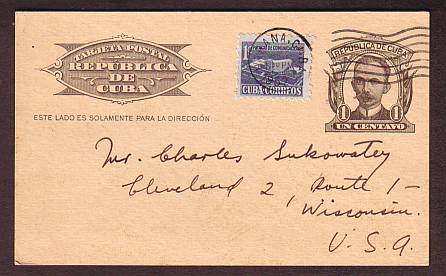 TARJETA POSTAL
REPUBLICA
DE
CUBA
ESTE LADO ES SOLAMENTE PARA LA DIRECCIÓN
1¢
PALACIO DE COMUNICACIONES
CUBA-CORREOS
REPUBLICA DE CUBA
1
1
UN CENTAVO
Mr. Charles Sukowatey
Cleveland 2, Route 1-
Wisconsin.
U. S. A.